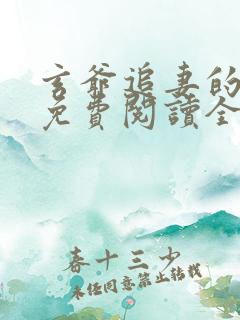 玄爺追妻的
免費閱讀全
春十三少
未经同意禁止转载